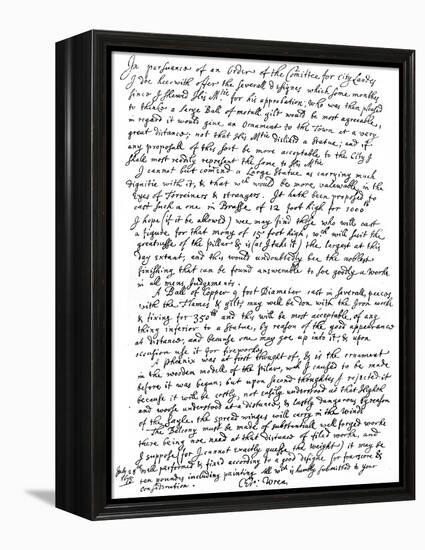 In persuance of an Order of the Comittee for City Landes
I doe heerwith offer the severall designes which some monthes
since I shewed His Mtie for his approbation, who was then pleased
to thinke a large Ball of metall gilt would be most agreeable,
in regard it would give an Ornament to the Town at a very
great distance; not that His Mtie disliked a Statue; and if
any proposall of this sort be more acceptable to the City I
shall most readily represent the same to His Mtie
I cannot but comend a Large Statue as carrying much
dignitie with it, & that wch would be more valewable in the
Eyes of Forreiners & strangers. It hath been proposed to
cast such a one in Brasse of 12 foot high for 1000
I hope (if it be allowed) wee may find those who will cast
a figure for that mony of 15 foot high, wch will suit the
greatnesse of the pillar & is (as I take it) the largest at this
day extant; and this would undoubtedly bee the noblest
finishing that can be found answerable to soe goodly a worke
in all mens Judgements.
A Ball of Copper 9 foot Diameter cast in severall peeces
with the Flames & gilt, may well be don with the Iron work
& fixing for 350 and this will be most acceptable of any
thing inferior to a Statue, by reason of the good appearance
at distance, and because one may goe up into it; & upon
occasion use it for fireworkes.
A phœnix was at first thought of, & is the ornament
in the wooden modell of the pilar, wch I caused to be made
before it was begun; but upon second thoughtes I rejected it
because it will be costly, not easily understood at that Highth
and worse understood at a distance, & lastly dangerous by reason
of the sayle the spread winges will carry in the winde
The Balcony must be made of substantiall well forged worke
there being noe need at that distance of filed worke, and
I suppose (for I cannot exactly guesse the weight) it may be
well performed & fixed according to a good designe for fourscore &
ten poundes including painting. All wch is humbly submitted to your
consideration.
July 28
Chr: Wren.